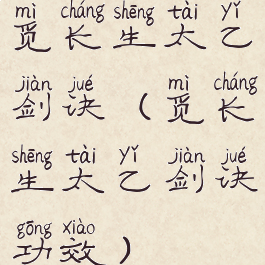 mì cháng shēng tài yǐ
觅长生太乙
jiàn jué mì cháng
剑诀（觅长
shēng tài yǐ jiàn jué
生太乙剑诀
gōng xiào
功效）